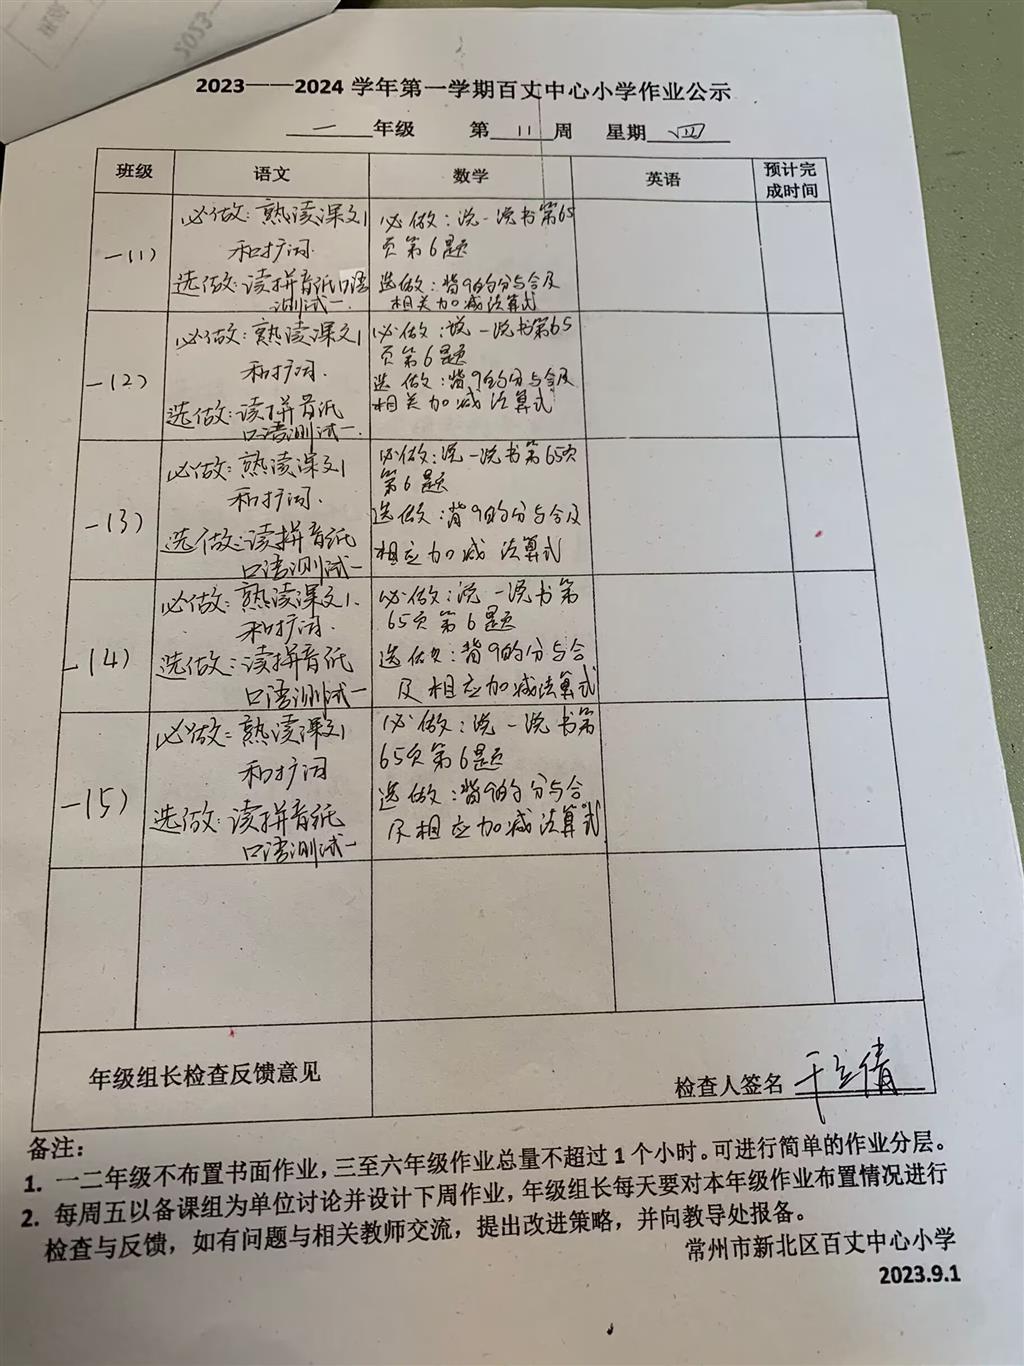 2023——2024 学年第一学期百丈中心小学作业公示
一年级 第11周 星期四
班级 语文 数学 英语 预计完成时间
一(1)
必做:熟读课文1
和扩词.
选做:读拼音纸口语
测试一.
必做:说一说书第65
页第6题
选做:背9的分与合及
相关加减法算式
一(2)
必做:熟读课文1
和扩词.
选做:读拼音纸
口语测试一.
必做:说一说书第65
页第6题
选做:背9的分与合及
相关加减法算式
一(3)
必做:熟读课文1
和扩词.
选做:读拼音纸
口语测试一
必做:说一说书第65页
第6题
选做:背9的分与合及
相应加减法算式
一(4)
必做:熟读课文1.
和扩词.
选做:读拼音纸
口语测试一
必做:说一说书第
65页第6题
选做:背9的分与合
及相应加减法算式
一(5)
必做:熟读课文1
和扩词
选做:读拼音纸
口语测试一
必做:说一说书第
65页第6题
选做:背9的分与合
及相应加减法算式
年级组长检查反馈意见
检查人签名
备注:
1. 一二年级不布置书面作业,三至六年级作业总量不超过1个小时。可进行简单的作业分层。
2. 每周五以备课组为单位讨论并设计下周作业,年级组长每天要对本年级作业布置情况进行
检查与反馈,如有问题与相关教师交流,提出改进策略,并向教导处报备。
常州市新北区百丈中心小学
2023.9.1